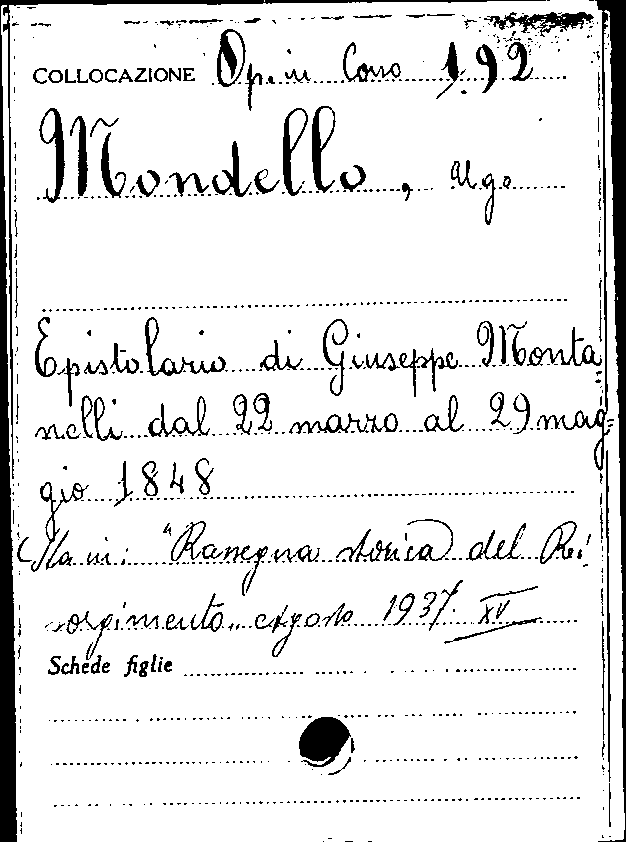 COLLOCAZIONE Op. in Corso 1.92
Mondello, Ugo
Epistolario di Giuseppe Monta
nelli dal 22 marzo al 29 mag=
gio 1848
Sta in: "Rassegna storica del Ri
sorgimento„ Agosto 1937. XV
Schede figlie